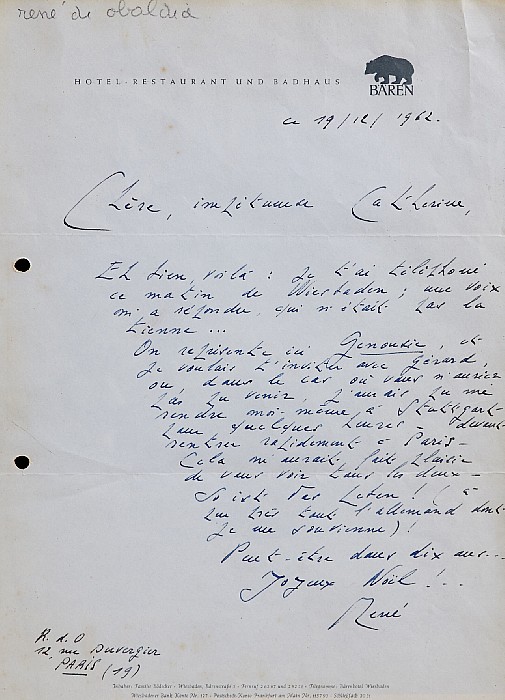 rené de obaldia
HOTEL-RESTAURANT UND BADHAUS
BÄREN
ce 19/12/1962.
Chère, impétueuse Catherine,
Eh bien, voilà : je t'ai téléphoné
ce matin de Wiesbaden ; une voix
m'a répondu, qui n'était pas la
tienne ...
On représente ici Genousie, et
je voulais t'inviter avec Gérard,
ou, dans le cas où vous n'auriez
pas pu venir, j'aurais pu me
rendre moi-même à Stuttgart
pour quelques heures - devant
rentrer rapidement à Paris -
Cela m'aurait fait plaisir
de vous voir tous les deux -
So ist das Leben ! (à
peu près tout l'allemand dont
je me souvienne) !
Peut-être dans dix ans...
Joyeux Noël ! ..
René
R. d. O
12 rue Duvergier
PARIS (19)
Wiesbaden